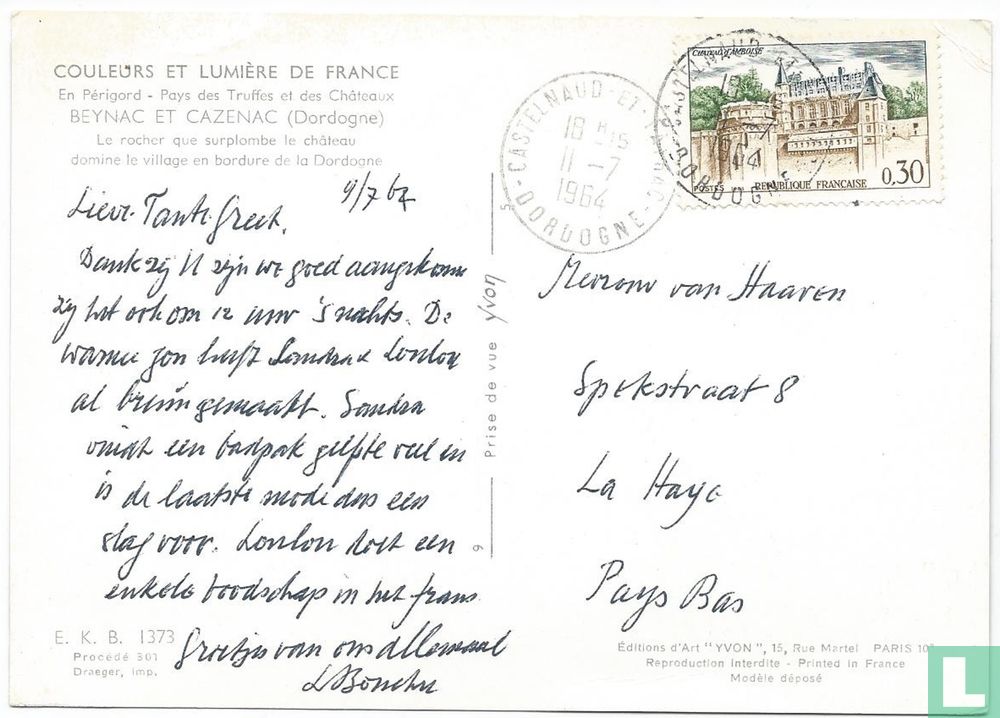 COULEURS ET LUMIÈRE DE FRANCE
En Périgord - Pays des Truffes et des Châteaux
BEYNAC ET CAZENAC (Dordogne)
Le rocher que surplombe le château
domine le village en bordure de la Dordogne
9/7 64
Lieve Tante Greet,
Dank zij U zijn we goed aangekomen
zij het ook om 12 uur 's nachts. De
warme zon heeft Sandra & London
al bruin gemaakt. Sandra
vindt een badpak geefte veel en
is de laatste mode dus een
slag voor. London doet een
enkele boodschap in het frans
Groetjes van ons allemaal
E. K. B. 1373
Procédé 301
Draeger, imp.
Prise de vue Yvon
9
CASTELNAUD-ET-
18 H 15
11 -7
1964
DORDOGNE
CHATEAU D'AMBOISE
POSTES RÉPUBLIQUE FRANÇAISE 0,30
Mevrouw van Haaren
Spekstraat 8
La Haye
Pays Bas
Éditions d'Art "YVON", 15, Rue Martel PARIS 10
Reproduction interdite - Printed in France
Modèle déposé
L